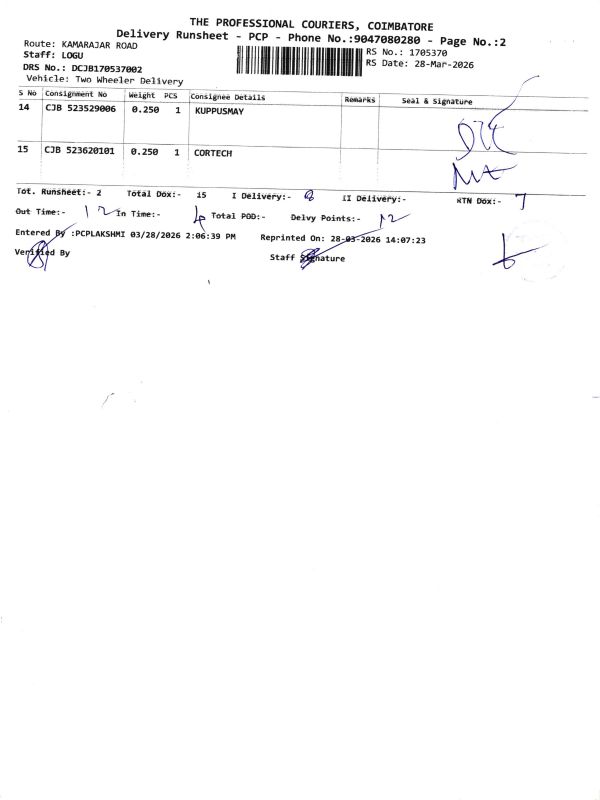 THE PROFESSIONAL COURIERS, COIMBATORE
Delivery Runsheet - PCP - Phone No.:9047080280 - Page No.:2
Route: KAMARAJAR ROAD
Staff: LOGU
DRS No.: DCJB170537002
Vehicle: Two Wheeler Delivery
RS No.: 1705370
RS Date: 28-Mar-2026
S No Consignment No Weight PCS Consignee Details Remarks Seal & Signature
14 CJB 523529006 0.250 1 KUPPUSMAY
15 CJB 523620101 0.250 1 CORTECH
Tot. Runsheet:- 2 Total Dox:- 15 I Delivery:- 8 II Delivery:- RTN Dox:- 7
Out Time:- 12 In Time:- 4 Total POD:- Delvy Points:- 12
Entered By :PCPLAKSHMI 03/28/2026 2:06:39 PM Reprinted On: 28-03-2026 14:07:23
Verified By Staff Signature